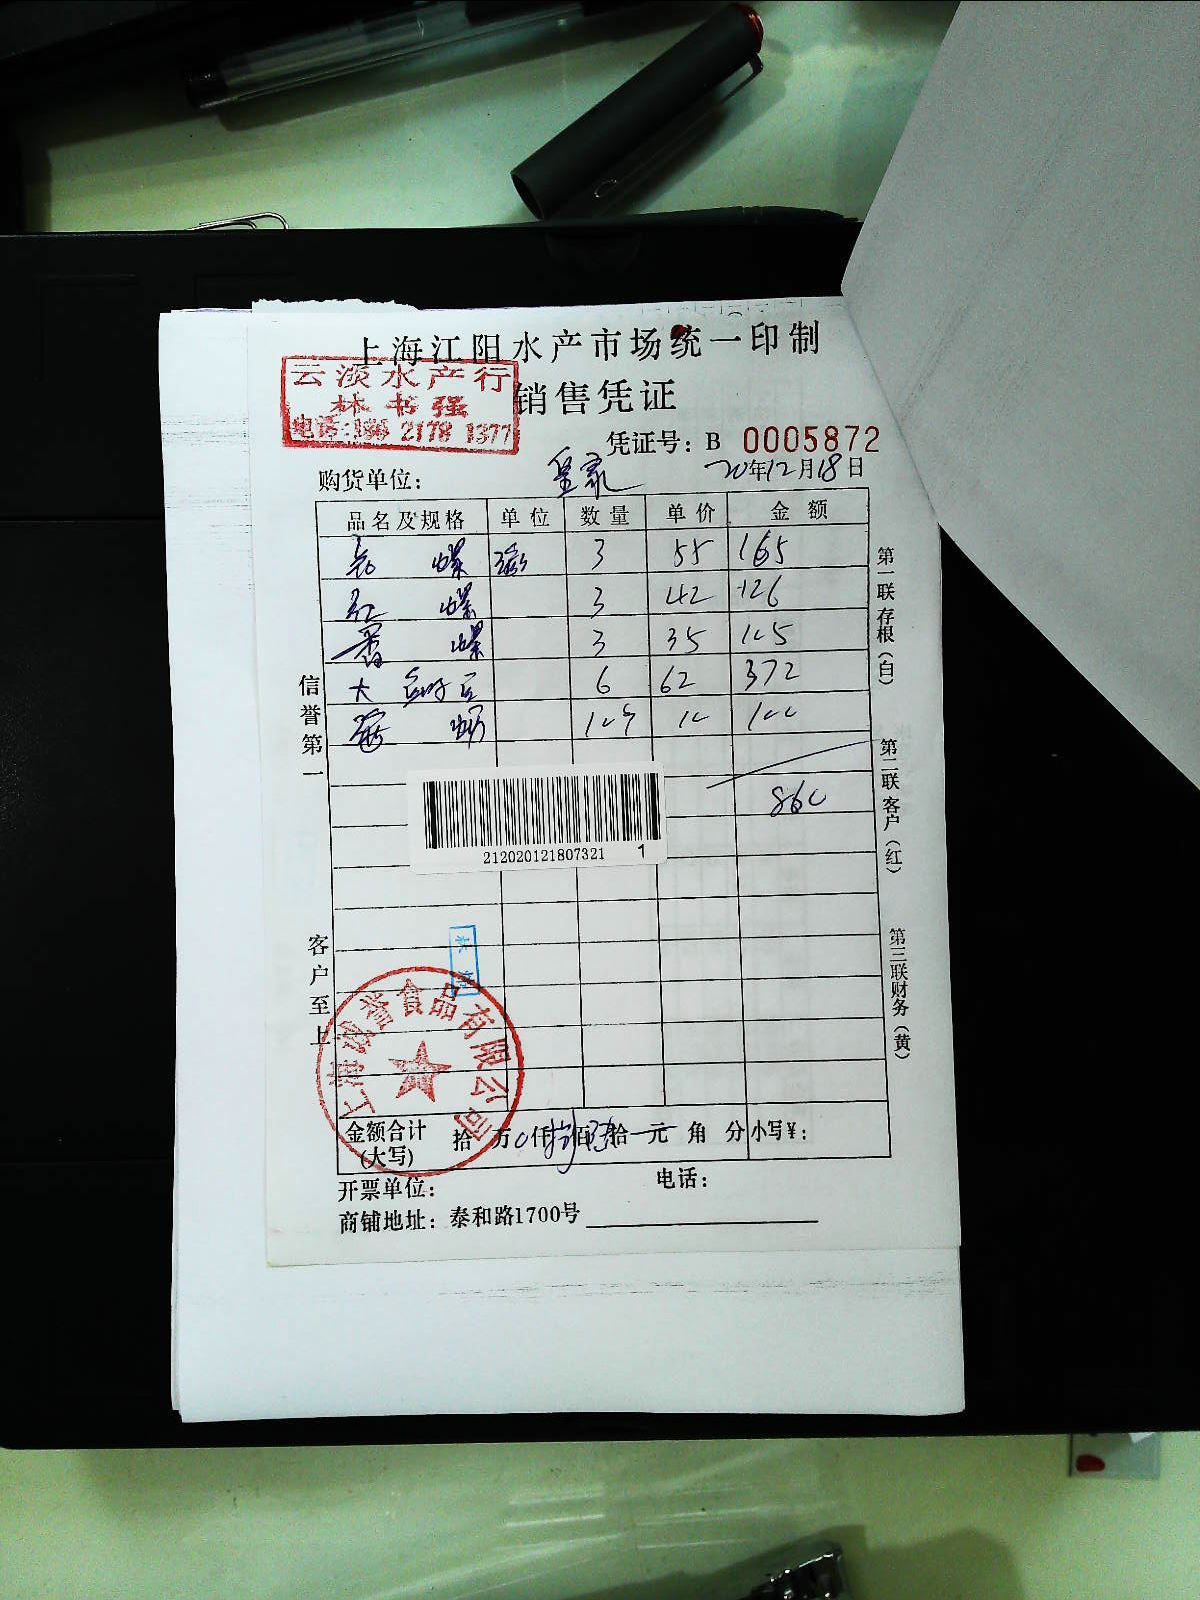 上海江阳水产市场统一印制
云淡水产行
林书强
电话:186 2178 1377
销售凭证
凭证号: B 0005872
购货单位: 皇家
20年12月18日
品名及规格 单位 数量 单价 金额
螺 3 55 165
红螺 3 42 126
香螺 3 35 105
大 6 62 372
10 100
860
212020121807321 1
信誉第一
客户至上
第一联存根(白)
第二联客户(红)
第三联财务(黄)
上海诚誉食品有限公司
金额合计(大写) 拾 万 仟 捌 佰 陆 拾 元 角 分 小写¥:
开票单位: 电话:
商铺地址: 泰和路1700号